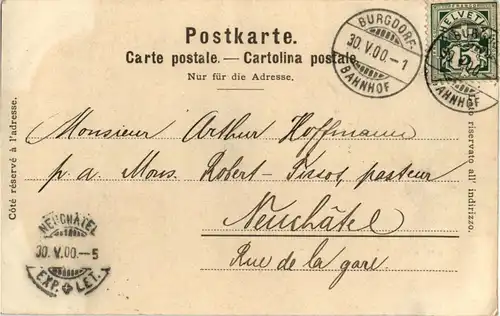 Postkarte.
Carte postale. — Cartolina postale
Nur für die Adresse.
BURGDORF
30. V. 00. – 1
BAHNHOF
HELVETIA
5
BAHNHOF
Côté réservé à l'adresse.
riservato all' indirizzo.
Monsieur Arthur Hoffmann
p. a. Mons. Robert - Tissot, pasteur
Neuchâtel
Rue de la gare.
NEUCHÂTEL
30. V. 00. – 5
EXP. LET.